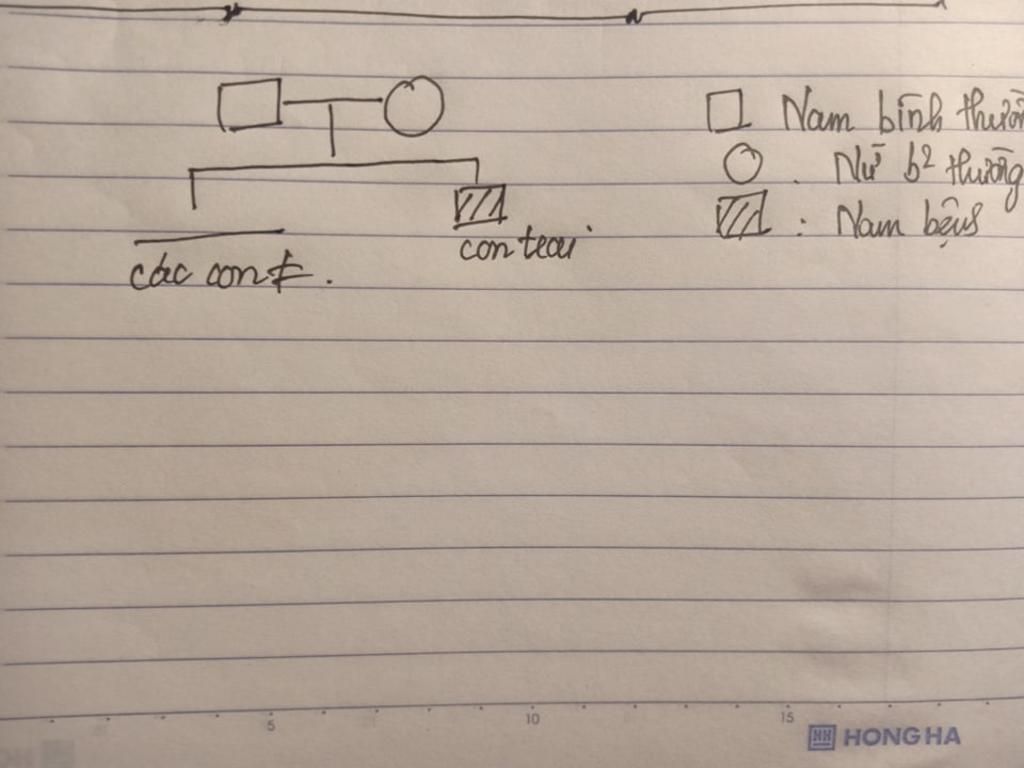 Nam bình thườn
Nữ b² thường
: Nam bệnh
con trai
các con ≠.
5 10 15
HONG HA